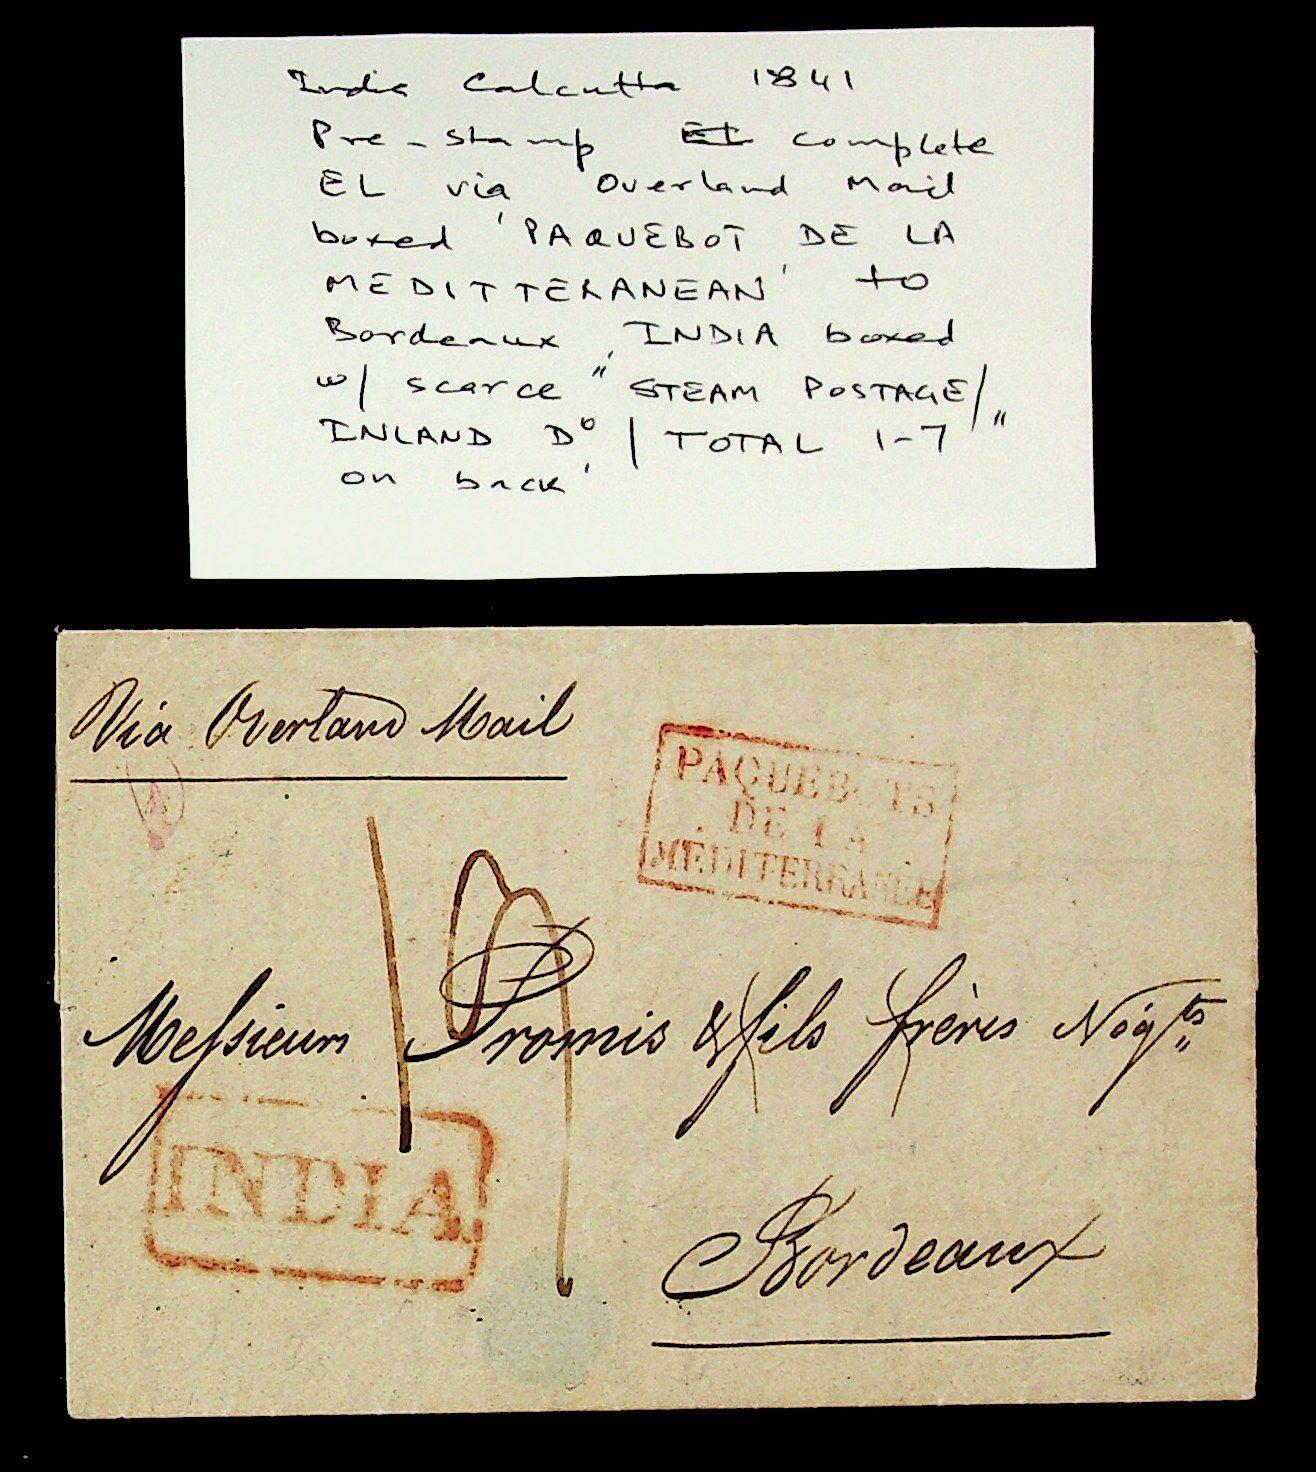 India Calcutta 1841
Pre-stamp EL complete
EL via Overland Mail
boxed 'PAQUEBOT DE LA
MEDITTERANEAN' to
Bordeaux, INDIA boxed
w/ scarce "STEAM POSTAGE/
INLAND Do / TOTAL 1-7"
on back'
Via Overland Mail
PAQUEBOTS
DE LA
MÉDITERRANÉE
19
Messieurs Promis & fils frères Nógts
INDIA
Bordeaux